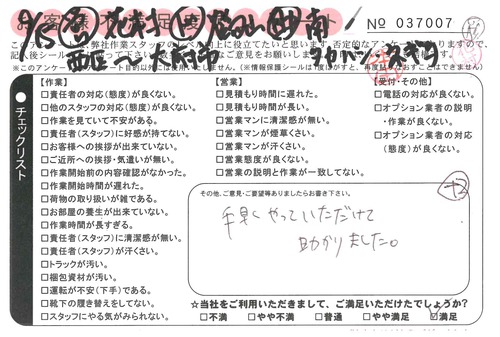 お客様不満足度アンケート
№ 037007
このアンケートは、弊社作業スタッフのレベル向上に役立てたいと思います。否定的なアンケートになりますので、
【作業】
□責任者の対応(態度)が良くない。
□他のスタッフの対応(態度)が良くない。
□作業を見ていて不安がある。
□責任者(スタッフ)に好感が持てない。
□お客様への挨拶が出来ていない。
□ご近所への挨拶・気遣いが無い。
□作業開始前の内容確認がなかった。
□作業開始時間が遅れた。
□荷物の取り扱いが雑である。
□お部屋の養生が出来ていない。
□作業時間が長すぎる。
□責任者(スタッフ)に清潔感が無い。
□責任者(スタッフ)が汗くさい。
□トラックが汚い。
□梱包資材が汚い。
□運転が不安(下手)である。
□靴下の履き替えをしてない。
□スタッフにやる気がみられない。
【営業】
□見積もり時間に遅れた。
□見積もり時間が長い。
□営業マンに清潔感が無い。
□営業マンが煙草くさい。
□営業マンが汗くさい。
□営業態度が良くない。
□営業の説明と作業が一致してない。
【受付・その他】
□電話の対応が良くない。
□オプション業者の説明
・作業が良くない。
□オプション業者の対応
(態度)が良くない。
●チェックリスト
その他、ご意見・ご要望等ありましたらお書き下さい。
+2
手早くやっていただけて
助かりました。
☆当社をご利用いただきまして、ご満足いただけたでしょうか?
□不満 □やや不満 □普通 □やや満足 □満足